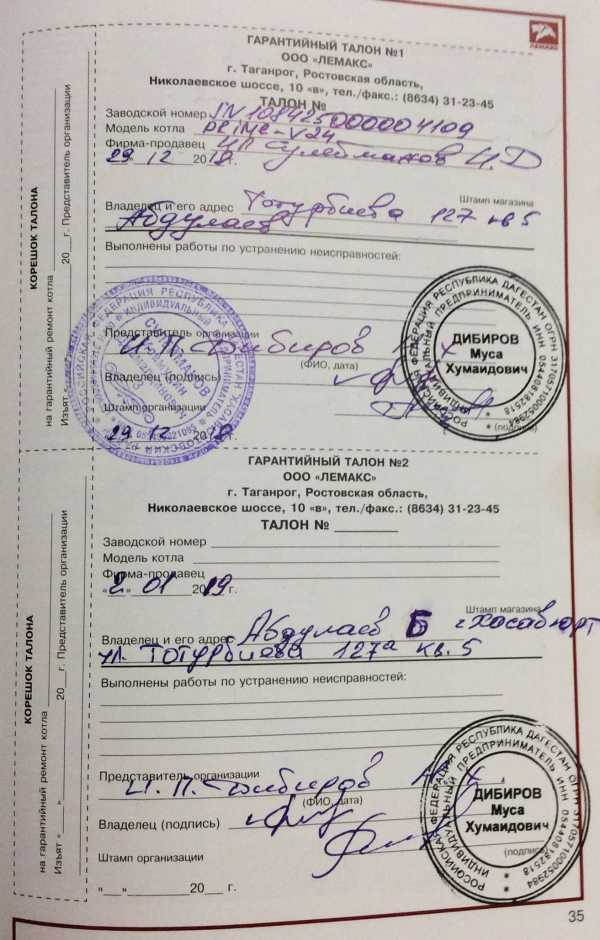 ЛЕМАКС
ГАРАНТИЙНЫЙ ТАЛОН №1
ООО «ЛЕМАКС»
г. Таганрог, Ростовская область,
Николаевское шоссе, 10 «в», тел./факс.: (8634) 31-23-45
ТАЛОН №
Заводской номер JN 108425000004109
Модель котла PRIME-V24
Фирма-продавец ИП Сулейманов И.Д
29 12 2018
Штамп магазина
Владелец и его адрес Тотурбиева 127 кв 5
Абдулаев
Выполнены работы по устранению неисправностей:
Представитель организации
И.П. Дибиров М Х
(ФИО, дата)
Владелец (подпись)
(подпись)
Штамп организации
29 12 2018
РОССИЙСКАЯ ФЕДЕРАЦИЯ РЕСПУБЛИКА ДАГЕСТАН ОГРН 317057100052984
ИНДИВИДУАЛЬНЫЙ ПРЕДПРИНИМАТЕЛЬ ИНН 054408182518
ДИБИРОВ
Муса
Хумаидович
КОРЕШОК ТАЛОНА
на гарантийный ремонт котла
Изъят « » 20 г. Представитель организации
ГАРАНТИЙНЫЙ ТАЛОН №2
ООО «ЛЕМАКС»
г. Таганрог, Ростовская область,
Николаевское шоссе, 10 «в», тел./факс.: (8634) 31-23-45
ТАЛОН №
Заводской номер
Модель котла
Фирма-продавец
«2» 01 2019 г.
Штамп магазина
Владелец и его адрес Абдулаев Б г Хасавюрт
ул. Тотурбиева 127а кв. 5
Выполнены работы по устранению неисправностей:
Представитель организации
И.П. Дибиров М Х
(ФИО, дата)
Владелец (подпись)
(подпись)
Штамп организации
« » 20 г.
РОССИЙСКАЯ ФЕДЕРАЦИЯ РЕСПУБЛИКА ДАГЕСТАН ОГРН 317057100052984
ИНДИВИДУАЛЬНЫЙ ПРЕДПРИНИМАТЕЛЬ ИНН 054408182518
ДИБИРОВ
Муса
Хумаидович
КОРЕШОК ТАЛОНА
на гарантийный ремонт котла
Изъят « » 20 г. Представитель организации
35